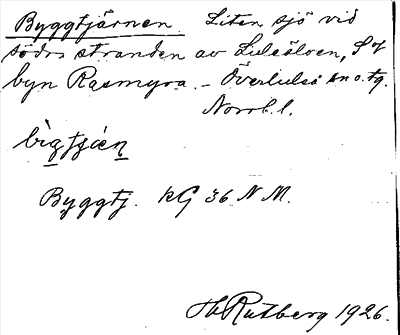 Byggtjärnen. Liten sjö vid
södra stranden av Luleälven, S of
byn Rasmyra. – Överluleå sn o. tg.
Norrb. l.
Byggtj. KG 36 N M.
Hb Rutberg 1926.